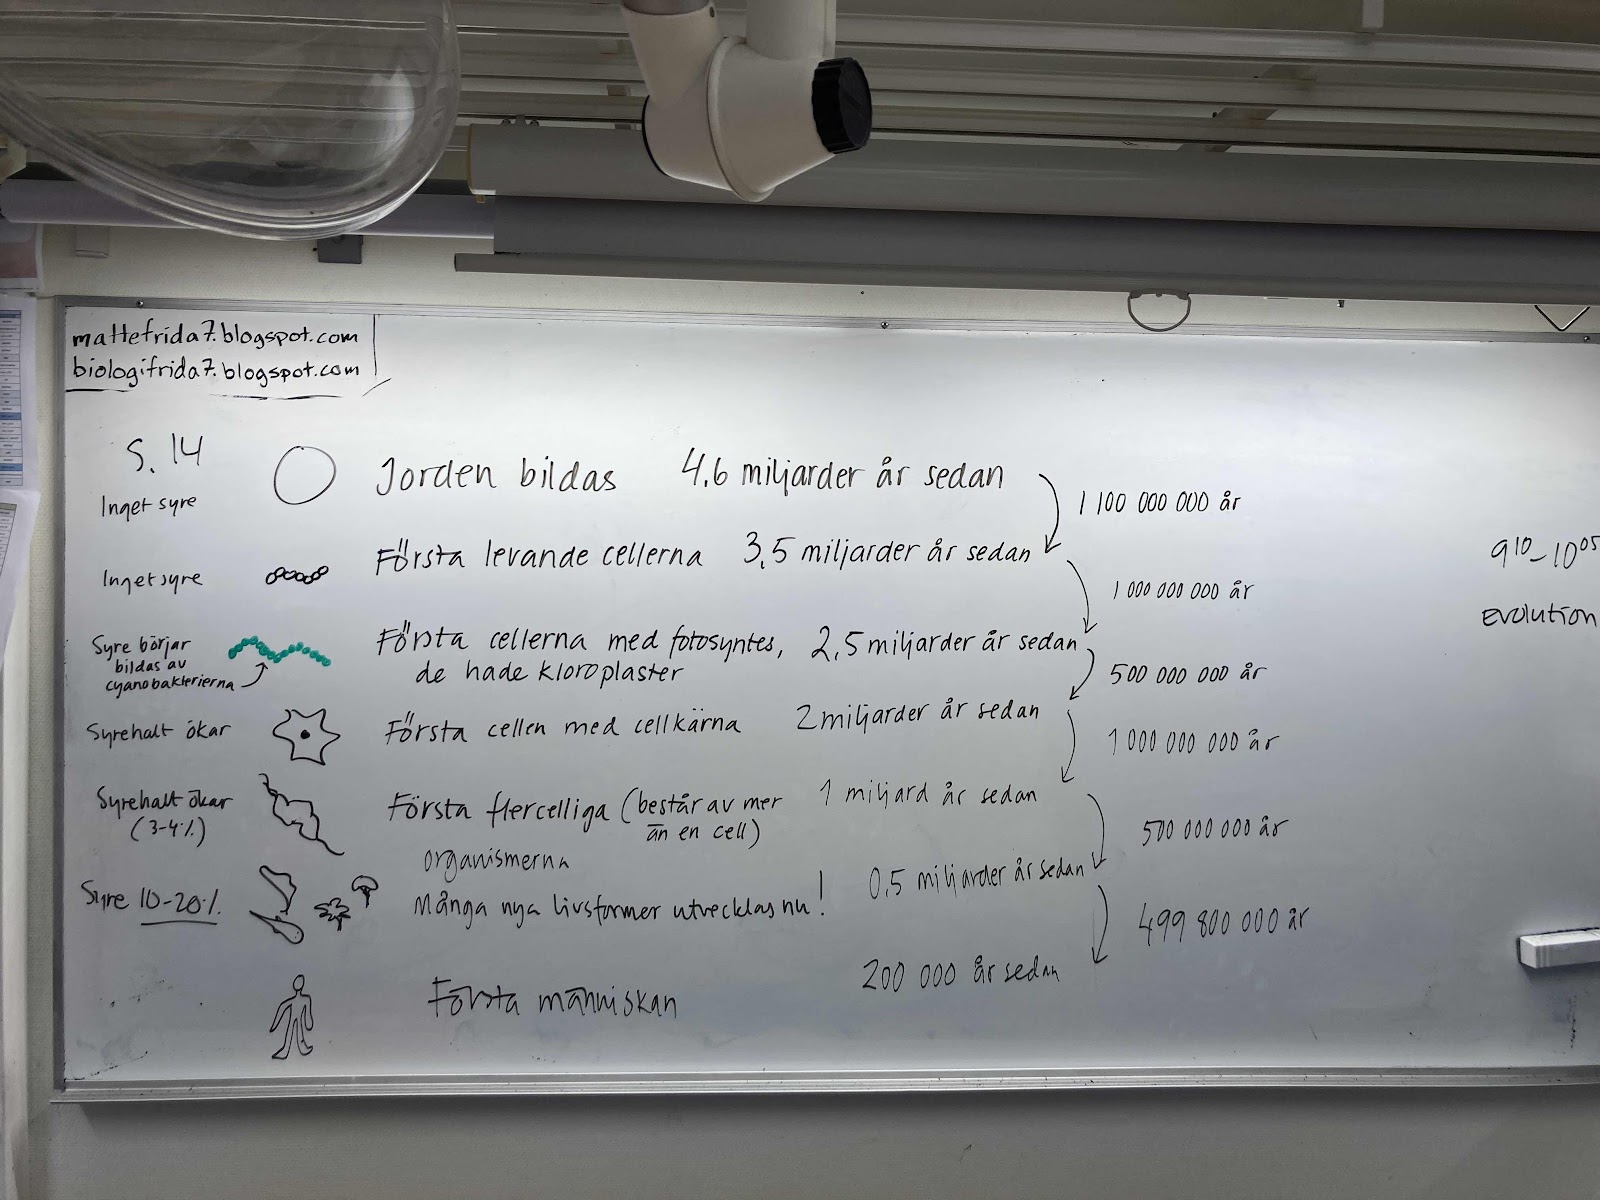 mattefrida7.blogspot.com
biologifrida7.blogspot.com
S. 14
Jorden bildas 4,6 miljarder år sedan
Inget syre
1 100 000 000 år
Första levande cellerna 3,5 miljarder år sedan
Inget syre
1 000 000 000 år
9¹⁰-10⁰⁵
Evolution
Syre börjar
bildas av
cyanobakterierna
Första cellerna med fotosyntes, 2,5 miljarder år sedan
de hade kloroplaster
500 000 000 år
Syrehalt ökar
Första cellen med cellkärna 2 miljarder år sedan
1 000 000 000 år
Syrehalt ökar
(3-4%)
Första flercelliga (består av mer 1 miljard år sedan
än en cell)
organismerna
500 000 000 år
Syre 10-20%
Många nya livsformer utvecklas nu! 0,5 miljarder år sedan
499 800 000 år
Första människan 200 000 år sedan